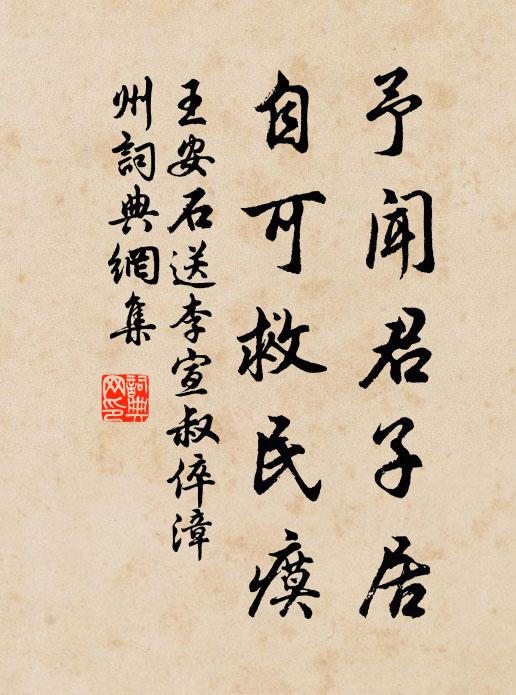 予聞君子居
自可救民瘼
王安石送李宣叔倅漳
州詞典網集
詞典
網印